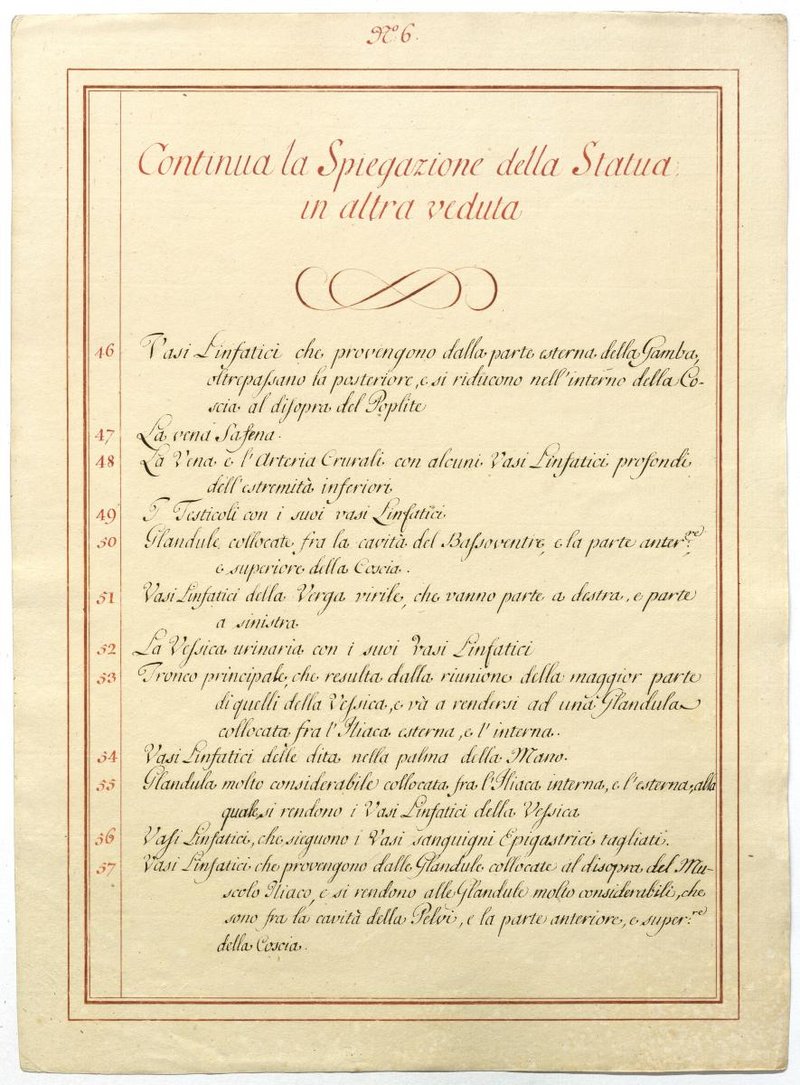 Nº 6.
Continua la Spiegazione della Statua
in altra veduta
46 Vasi Linfatici che provengono dalla parte esterna della Gamba,
oltrepassano la posteriore, e si riducono nell'interno della Co-
scia al disopra del Poplite
47 La vena Safena.
48 La Vena e l'Arteria Crurali con alcuni Vasi Linfatici profondi
dell'estremità inferiori
49 I Testicoli con i suoi vasi Linfatici
50 Glandule collocate fra la cavità del Bassoventre, e la parte anter:re
e superiore della Coscia.
51 Vasi Linfatici della Verga virile, che vanno parte a destra, e parte
a sinistra
52 La Vessica urinaria con i suoi Vasi Linfatici
53 Tronco principale, che resulta dalla riunione della maggior parte
di quelli della Vessica, e và a rendersi ad una Glandula
collocata fra l'Iliaca esterna, e l'interna.
54 Vasi Linfatici delle dita nella palma della Mano.
55 Glandula molto considerabile collocata fra l'Iliaca interna, e l'esterna, alla
quale si rendono i Vasi Linfatici della Vessica
56 Vasi Linfatici, che sieguono i Vasi sanguigni Epigastrici tagliati.
57 Vasi Linfatici che provengono dalle Glandule collocate al disopra del Mu-
scolo Iliaco, e si rendono alle Glandule molto considerabili, che
sono fra la cavità della Pelvi, e la parte anteriore, e super:re
della Coscia.